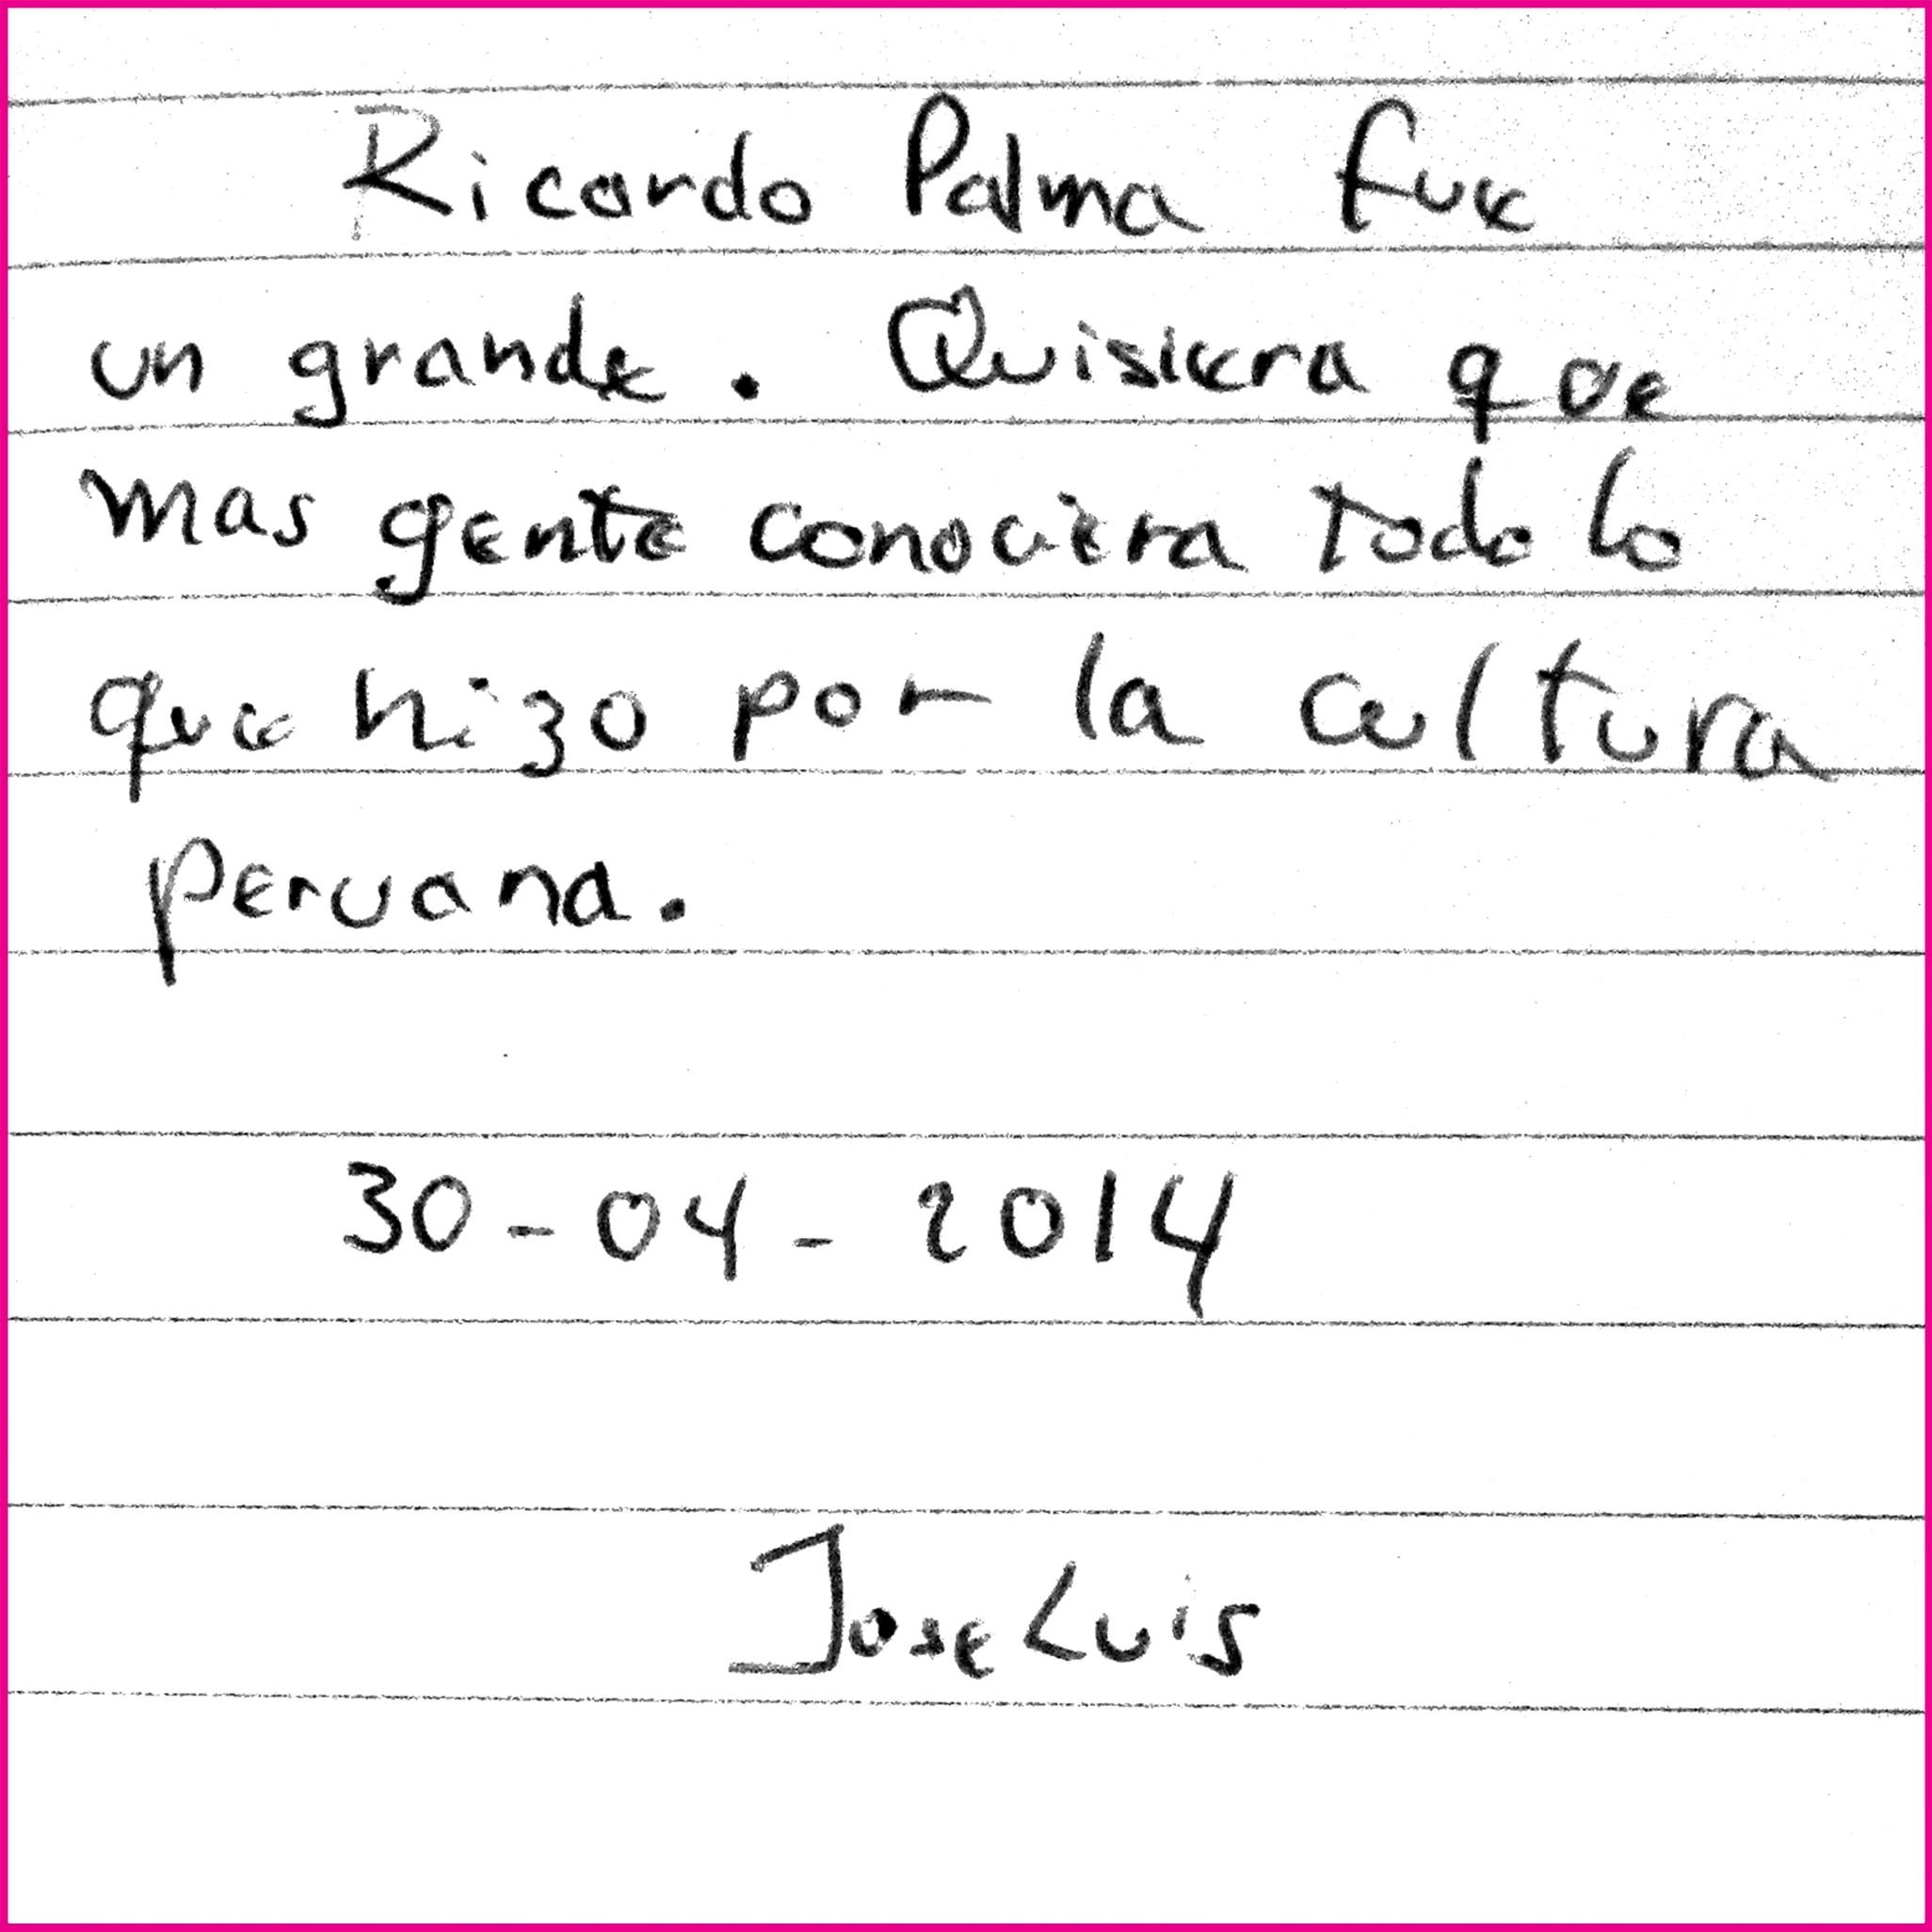 Ricardo Palma fue
un grande. Quisiera que
mas gente conociera todo lo
que hizo por la cultura
peruana.
30-04-2014
Jose Luis